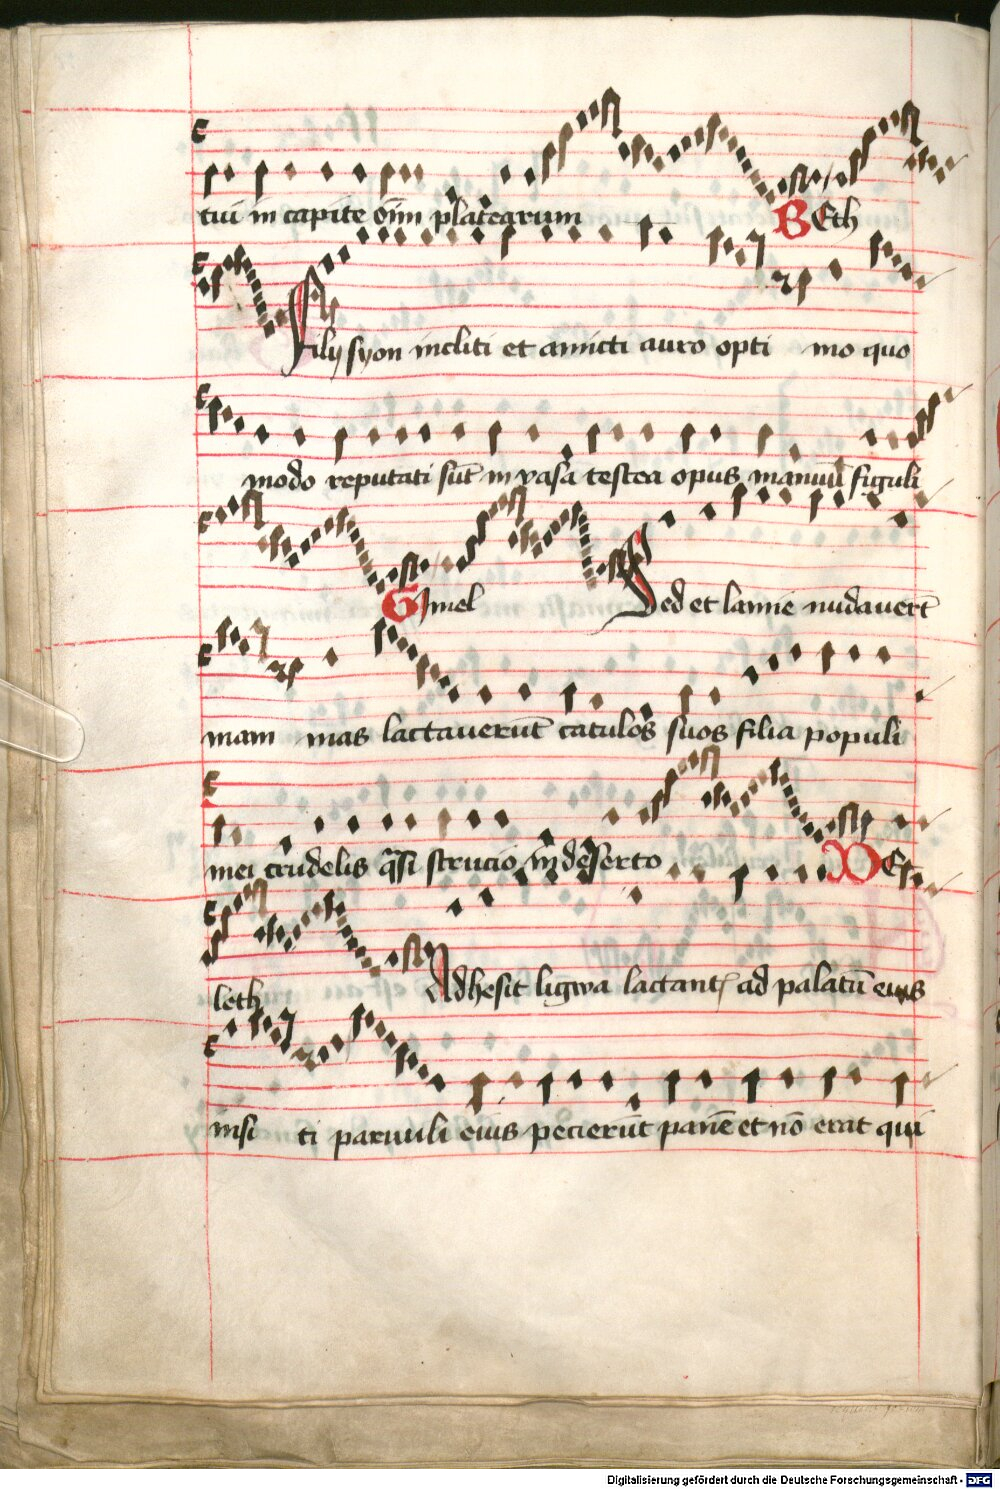 tui in capite oīm platearum BEth
Filij syon incliti et amicti auro opti mo quo
modo reputati sūt in vasa testea opus manuū figuli
GImel Sed et lamie nudauerūt
mam mas lactauerūt catulos suos filia populi
mei crudelis q̄si strucio in deserto DE
leth Adhesit ligwa lactant ad palatū eius
insi ti paruuli eius pecierūt panē et nō erat qui
Digitalisierung gefördert durch die Deutsche Forschungsgemeinschaft - DFG